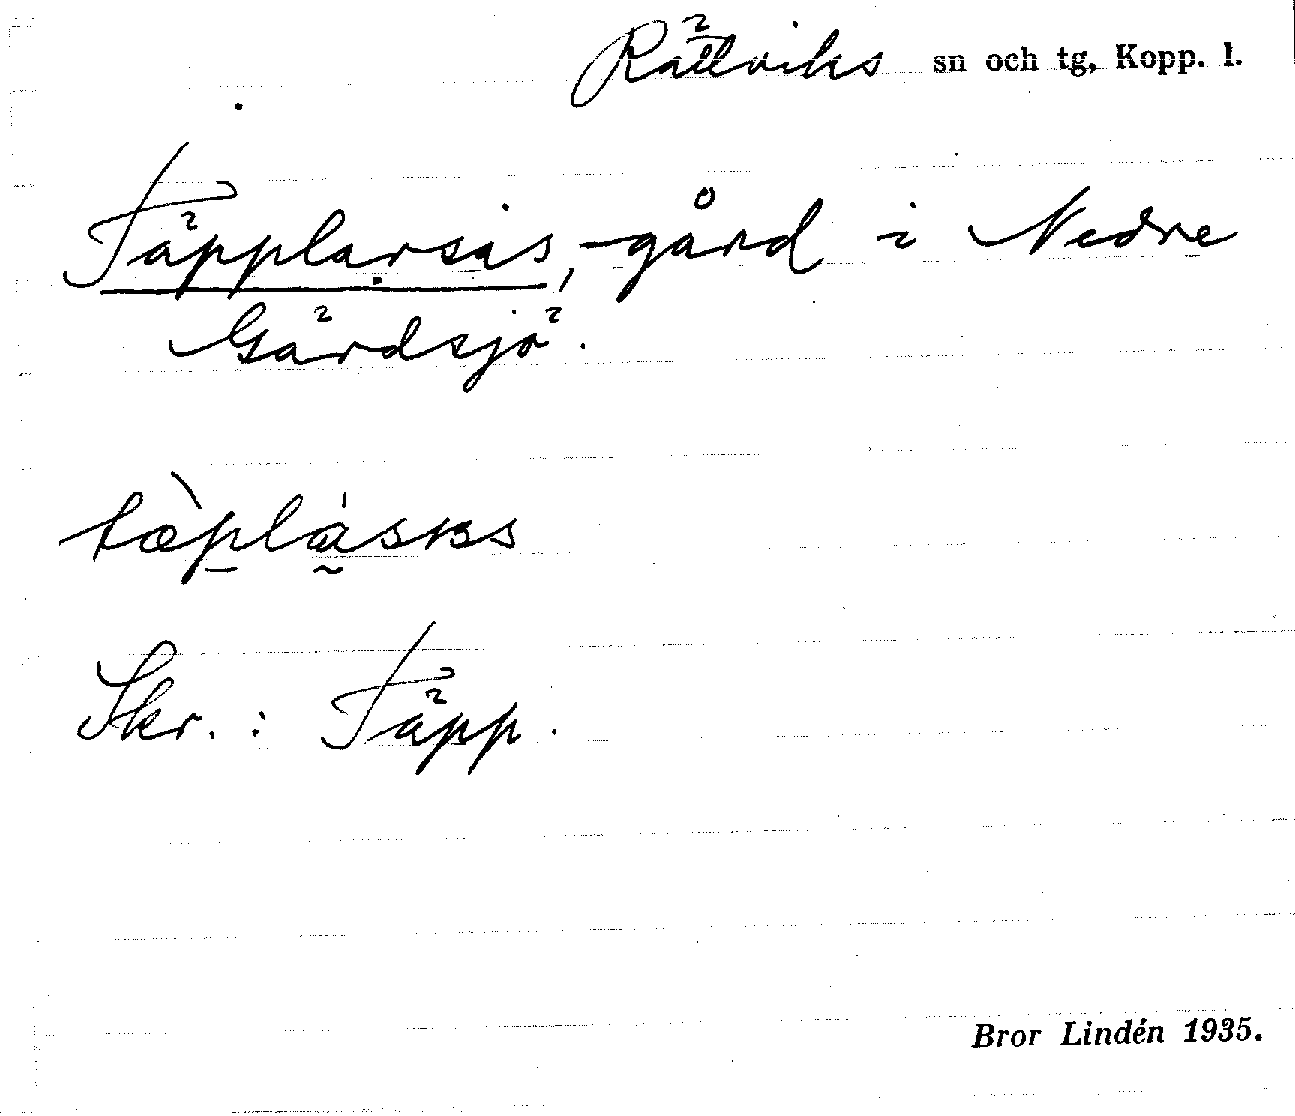 Rättviks sn och tg, Kopp. l.
Täpplarsas, -gård i Nedre
Gärdsjö.
Skr. : Täpp.
Bror Lindén 1935.